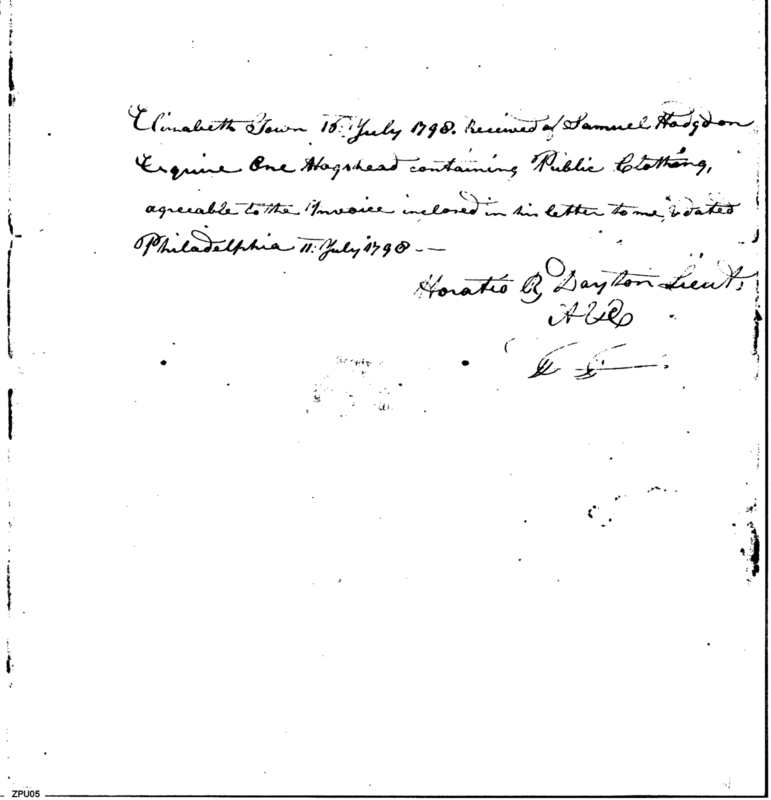 Elizabeth Town 16 July 1798. Received of Samuel Hodgdon
Esquire One Hogshead containing Public Clothing,
agreeable to the Invoice inclosed in his letter to me, dated
Philadelphia 11. July 1798 —
Horatio R Dayton Lieut.
ZPU05